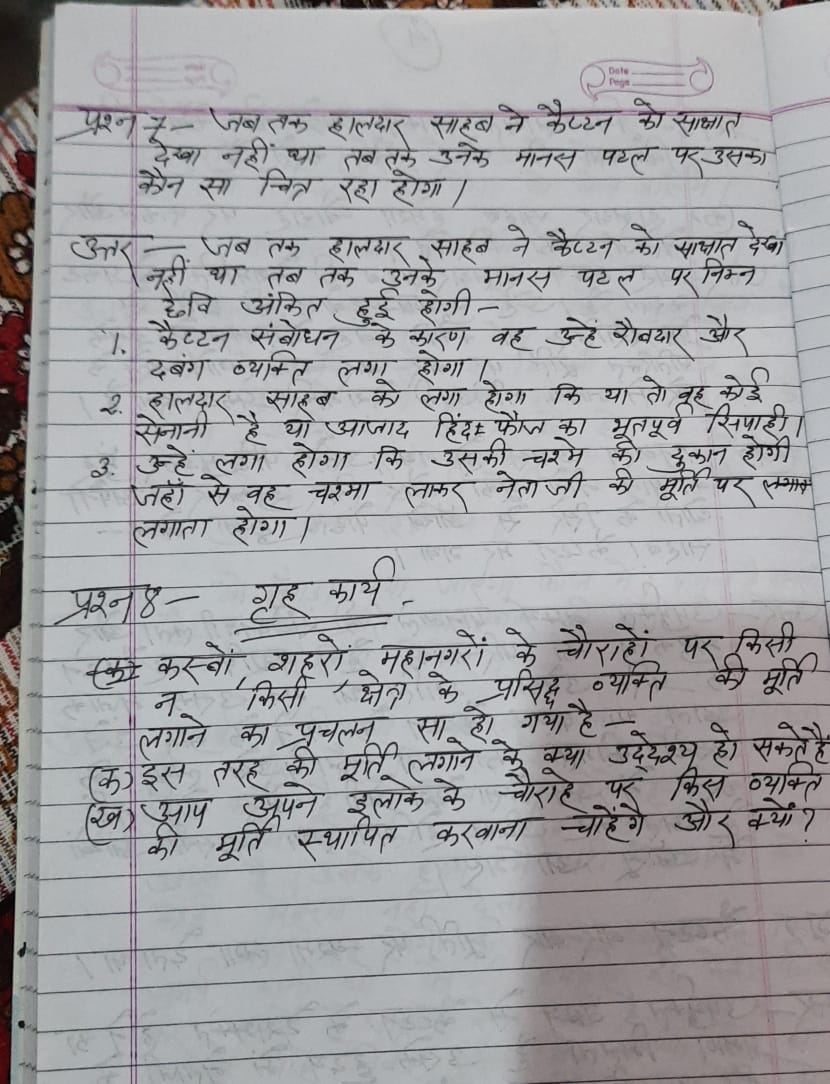 Date
Page
प्रश्न 7 - जब तक हालदार साहब ने कैप्टन को साक्षात
देखा नहीं था तब तक उनके मानस पटल पर उसका
कौन सा चित्र रहा होगा।
उत्तर - जब तक हालदार साहब ने कैप्टन को साक्षात देखा
नहीं था तब तक उनके मानस पटल पर निम्न
छवि अंकित हुई होगी -
1. कैप्टन संबोधन के कारण वह उन्हें रौबदार और
दबंग व्यक्ति लगा होगा।
2. हालदार साहब को लगा होगा कि या तो वह कोई
सेनानी है या आजाद हिंद फौज का भूतपूर्व सिपाही।
3. उन्हें लगा होगा कि उसकी चश्मे की दुकान होगी
जहाँ से वह चश्मा लाकर नेताजी की मूर्ति पर
लगाता होगा।
प्रश्न 8 - गृह कार्य -
(क) कस्बों, शहरों, महानगरों के चौराहों पर किसी
न किसी क्षेत्र के प्रसिद्ध व्यक्ति की मूर्ति
लगाने का प्रचलन सा हो गया है -
(क) इस तरह की मूर्ति लगाने के क्या उद्देश्य हो सकते हैं
(ख) आप अपने इलाके के चौराहे पर किस व्यक्ति
की मूर्ति स्थापित करवाना चाहेंगे और क्यों?